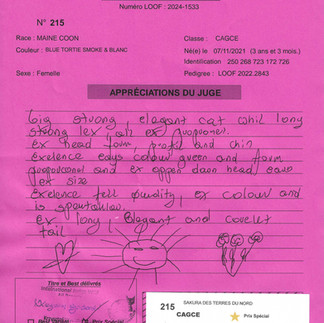 Numéro LOOF : 2024-1533
N° 215
Race : MAINE COON
Classe : CAGCE
Couleur : BLUE TORTIE SMOKE & BLANC
Né(e) le 07/11/2021 (3 ans et 3 mois.)
Identification 250 268 723 172 726
Sexe : Femelle
Pedigree : LOOF 2022.2843
APPRÉCIATIONS DU JUGE
big strong, elegant cat whil long
strong lex, tail ex
ex head form, profil and chin
Exelence eays colour green and form
and ex open daon head eare
ex size
Exelence fell puridity, ex colour and
is
ex long, elegant and
tail
Titre et Best délivrés
215
SAKURA DES TERRES DU NORD
CAGCE
Prix Spécial